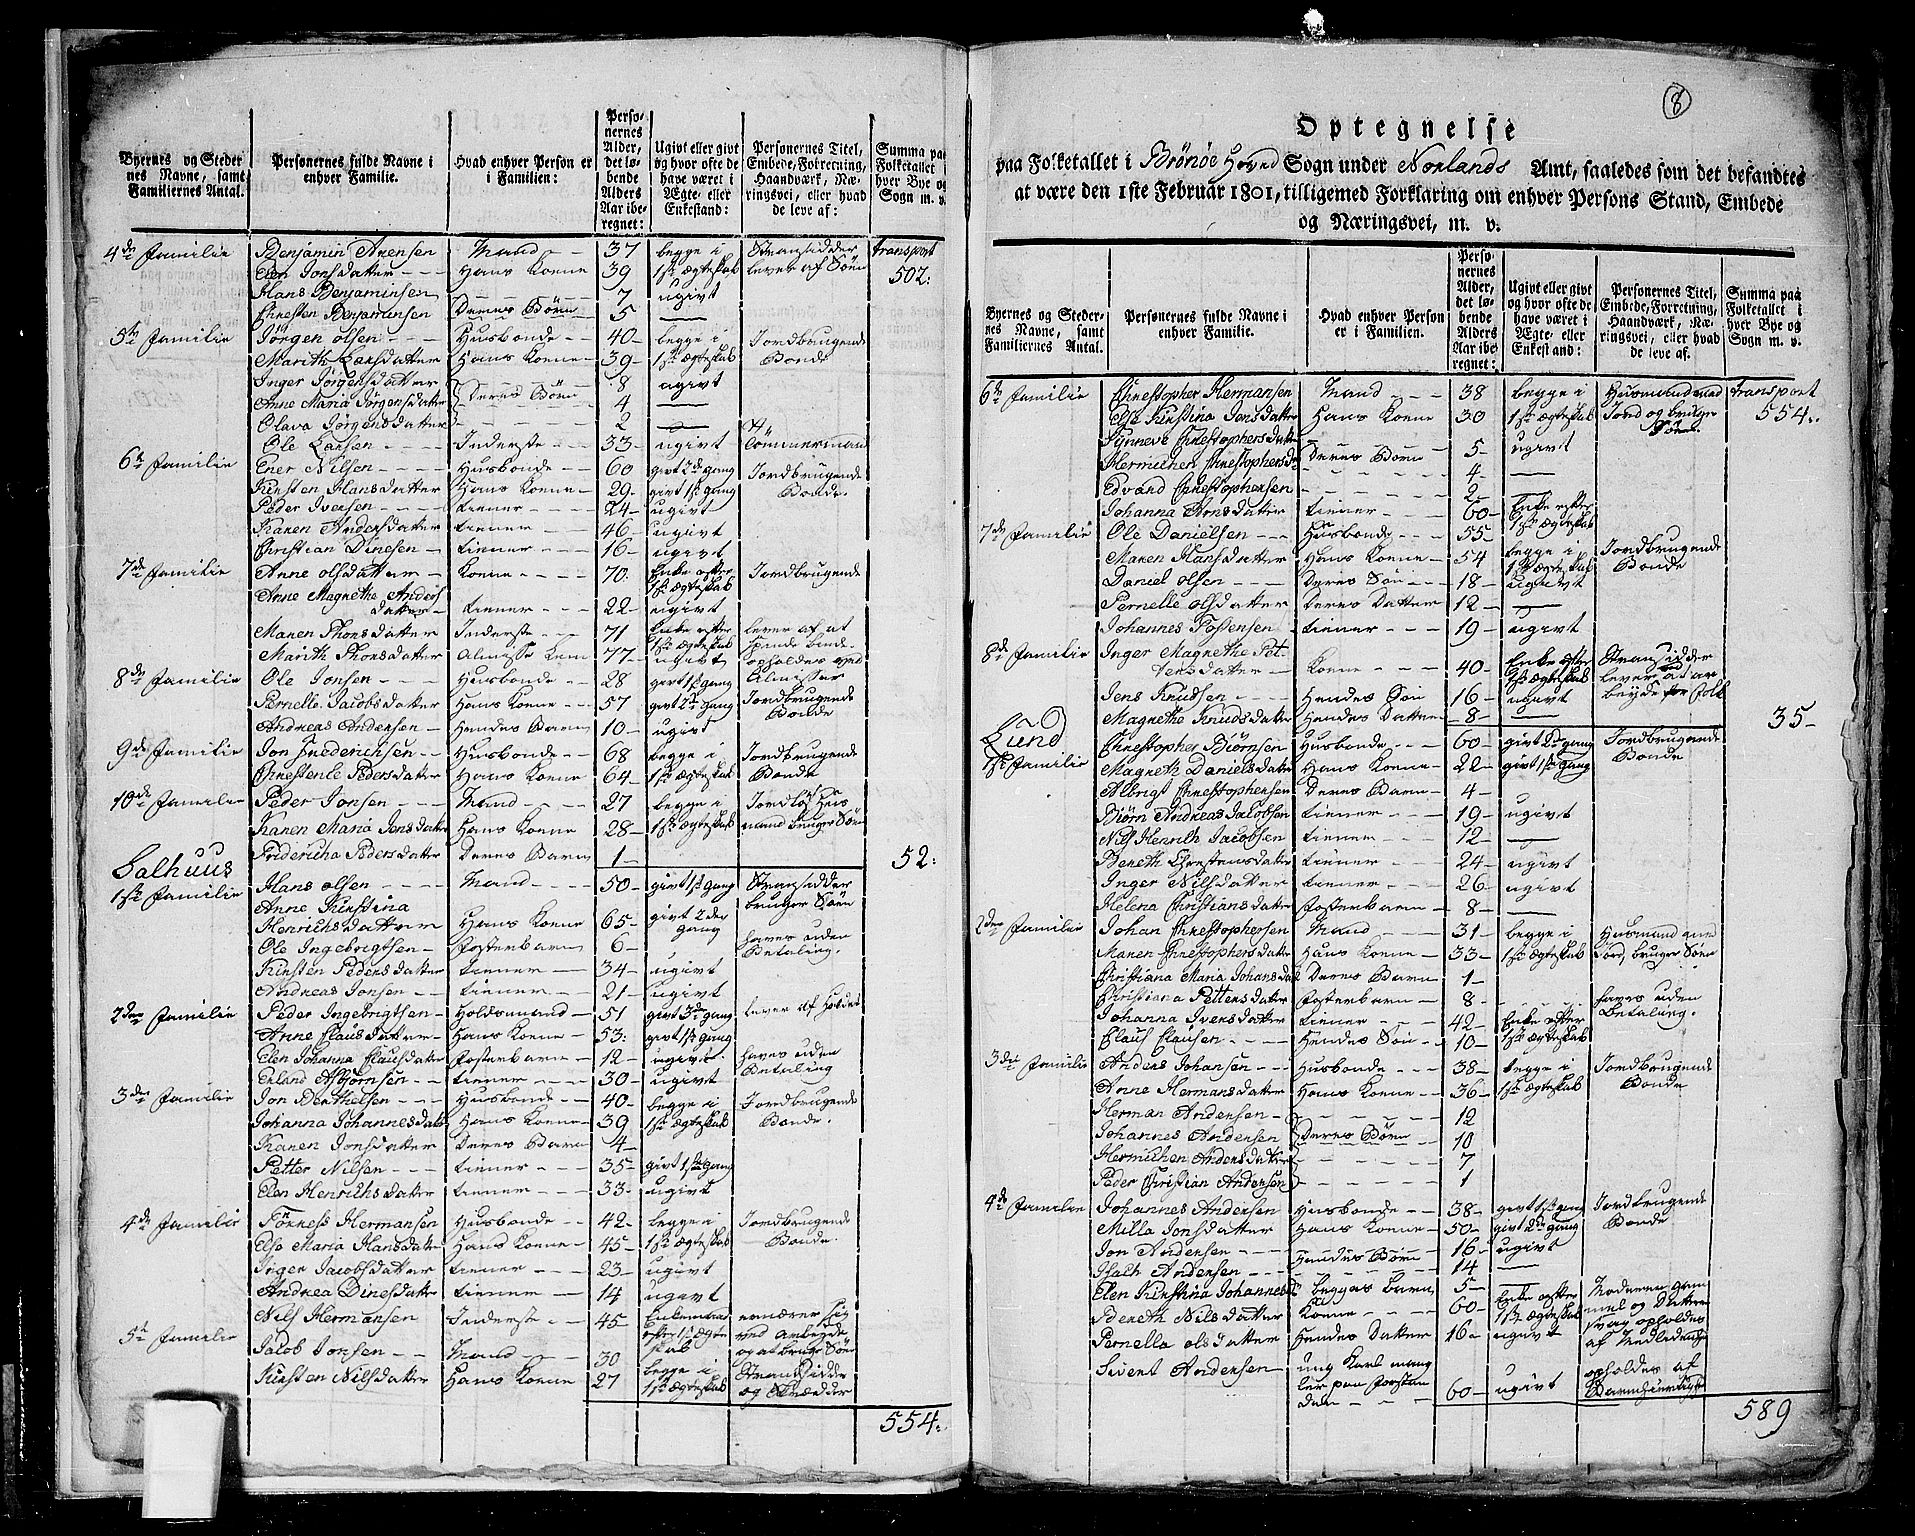 Byernes og Steder nes Navne, samt Familiernes Antal.
Personernes fulde Navne i enhver Familie.
Hvad enhver Person er i Familien:
Personernes Alder, det løbende Alders Aar iberegnet:
Ugivt eller givt og hvor ofte de have været i Ægte- eller Enkestand:
Personernes Titel, Embede, Forretning, Haandværk, Næringsvei, eller hvad de leve af:
Summa paa Folketallet i hver Bye og Sogn m. v.
4de Familie Benjamin Arensen Mand 37 begge i Stransidder transport
Elen Jonsdatter Hans Kone 39 1ste ægteskab lever af Søen 502.
Hans Benjaminsen 7 ugivt
Chresten Benjaminsen Deres Børn 5
5te Familie Jørgen Olsen Husbonde 40 begge i Jordbrugende
Marith Larsdatter Hans Kone 39 1ste ægteskab Bonde
Inger Jørgensdatter 8 ugivt
Anne Maria Jørgensdatter Deres Børn 4
Olava Jørgensdatter 2
Ole Larsen Inderste 33 ugivt Tømmermand
6te Familie Ener Nilsen Husbonde 60 givt 2de gang Jordbrugende
Kirsten Hansdatter Hans Kone 29 givt 1ste gang Bonde.
Peder Iversen tiener 24 ugivt
Karen Andersdatter tiener 46 ugivt
Christian Dinesen tiener 16 ugivt
7de Familie Anne Olsdatter Kone 70. Enke efter 1ste ægteskab Jordbrugende
Anne Magnethe Anders
datter tiener 22 ugivt
Maren Thonsdatter Inderste 71 Enke efter 1ste ægteskab lever af at spinde
Marith Thonsdatter Almisse Lem 77 ugivt opholdes ved Almisser
8de Familie Ole Jonsen Husbonde 28 givt 1ste gang Jordbrugende
Pernelle Jacobsdatter Hans Kone 57 givt 2de gang Bonde
Andreas Andersen Hendes Barn 10 ugivt
9de Familie Jon Friderichsen Husbonde 68 begge i Jordbrugende
Chrestenle Pedersdatter Hans Kone 64 1ste ægteskab Bonde
10de Familie Peder Jonsen Mand 27 begge i Jordløs Huus
Karen Maria Jensdatter Hans Kone 28 1ste ægteskab mand bruger Søen
Fridericha Pedersdatter Deres Barn 1 52.
Salhuus
1ste Familie Hans Olsen Mand 50 givt 1ste gang Stransidder
Anne Kirstina bruger Søen
Henrichsdatter Hans Kone 65 givt 2den gang
Ole Ingebrigtsen Fosterbarn 6 haves uden Betaling.
Kirsten Pedersdatter tiener 34 ugivt
Andreas Jonsen tiener 21 ugivt
2den Familie Peder Ingebrigtsen Holdsmand 51 givt 3de gang lever af Holdet
Anne Clausdatter Hans Kone 53. givt 1ste gang
Elen Johanna Clausdatter Fosterbarn 12 ugivt haves uden
Erland Asbjørnsen tiener 30 ugivt Betaling
3de Familie Jon Berthelsen Husbonde 40 begge i Jordbrugende
Johanna Johannesdatter Hans Kone 39 1ste ægteskab Bonde.
Karen Jonsdatter Deres Barn 4
Petter Nilsen tiener 35 givt 1ste gang
Elen Henrichsdatter tiener 33 ugivt
4de Familie Tønness Hermansen Husbonde 42 begge i Jordbrugende
Else Maria Hansdatter Hans Kone 45 1ste ægteskab Bonde.
Inger Jacobsdatter tiener 23 ugivt
Andrea Dinesdatter tiener 14 ugivt
Nils Hermansen Inderste 45 Enkemand efter 1ste ægteskab ernærer sig ved arbejde, og at bruge Søen
5te Familie Jacob Jonsen Mand 30 begge i Strandsidder
Kirsten Nilsdatter Hans Kone 27 1ste ægteskab og Skrædder
554.
8
Optegnelse
paa Folketallet i Brønøe Hoved Sogn under Norlands Amt, saaledes som det befandtes
at være den 1ste Februar 1801, tilligemed Forklaring om enhver Persons Stand, Embede
og Næringsvei, m. v.
Byernes og Stedernes Navne, samt Familiernes Antal.
Personernes fulde Navne i enhver Familie.
Hvad enhver Person er i Familien.
Personernes Alder, det løbende Alders Aar iberegnet:
Ugivt eller givt og hvor ofte de have været i Ægte- eller Enkestand:
Personernes Titel, Embede, Forretning, Haandværk, Næringsvei, eller hvad de leve af.
Summa paa Folketallet i hver Bye og Sogn m. v.
6te Familie Chrestopher Hermansen Mand 38 begge i Husmand med transport
Else Kirstina Jonsdatter Hans Kone 30 1ste ægteskab Jord og bruger Søen 554.
Synneve Chrestophersdatter 5 ugivt
Hermichen Chrestophersd. Deres Børn 4
Edvard Chrestophersen 2
Johanna Arnsdatter tiener 60 Enke efter 1ste ægteskab
7de Familie Ole Danielsen Husbonde 55 begge i Jordbrugende
Maren Hansdatter Hans Kone 54 1ste ægteskab Bonde
Daniel Olsen Deres Søn 18 ugivt
Pernelle Olsdatter Deres Datter 12
Johannes Tostensen tiener 19 ugivt
8de Familie Inger Magnethe Pet
tersdatter Kone 40 Enke efter ægteskab Stransidder lever af ar
Jens Knudsen Hendes Søn 16 ugivt beyde for folk
Magnethe Knudsdatter Hendes Datter 8 35
Lund
1ste Familie Chrestopher Biørnsen Husbonde 60 givt 2de gang Jordbrugende
Magneth Danielsdatter Hans Kone 22 givt 1ste gang Bonde
Albrigt Chrestophersen Deres Barn 4
Biørn Andreas Jacobsen tiener 19 ugivt
Nils Henrich Jacobsen tiener 12
Bereth Chrestensdatter tiener 24 ugivt
Inger Nilsdatter tiener 26 ugivt
Helena Christiansdatter Fosterbarn 8
2den Familie Johan Chrestophersen Mand 31 begge i Husmand
Maren Chrestophersdatter Hans Kone 33 1ste ægteskab Jord, bruger Søen
Christiana Maria Johansdat Deres Barn 1
Christiana Pettersdatter Fosterbarn 8 haves uden
Johanna Iversdatter tiener 42 Enke efter Betaling.
Claus Clausen Hendes Søn 10 1ste ægteskab
3de Familie Anders Johansen Husbonde 38 begge i Jordbrugende
Anne Hermansdatter Hans Kone 36 1ste ægteskab Bonde
Herman Andersen 12
Johannes Andersen Deres Børn 10
Hermichen Andersdatter 7
Peder Christian Andersen 1
4de Familie Johannes Andersen Husbonde 38 givt 1ste gang Jordbrugende
Milla Jonsdatter Hans Kone 50 givt 2de gang Bonde
Jon Andersen 16 ugivt
Isach Andersen Hendes Børn 14
Elen Kirstina Johannesd. begges barn 5
Bereth Nilsdatter Kone 60 Enke efter 1ste ægteskab Moderen gam
Pernella Olsdatter Hendes Datter 16 ugivt mel og Datteren svag opholdes af
Sivert Andersen ung Karl mang
ler paa Forstan
den 60 ugivt opholdes af Barmhiertighed
589